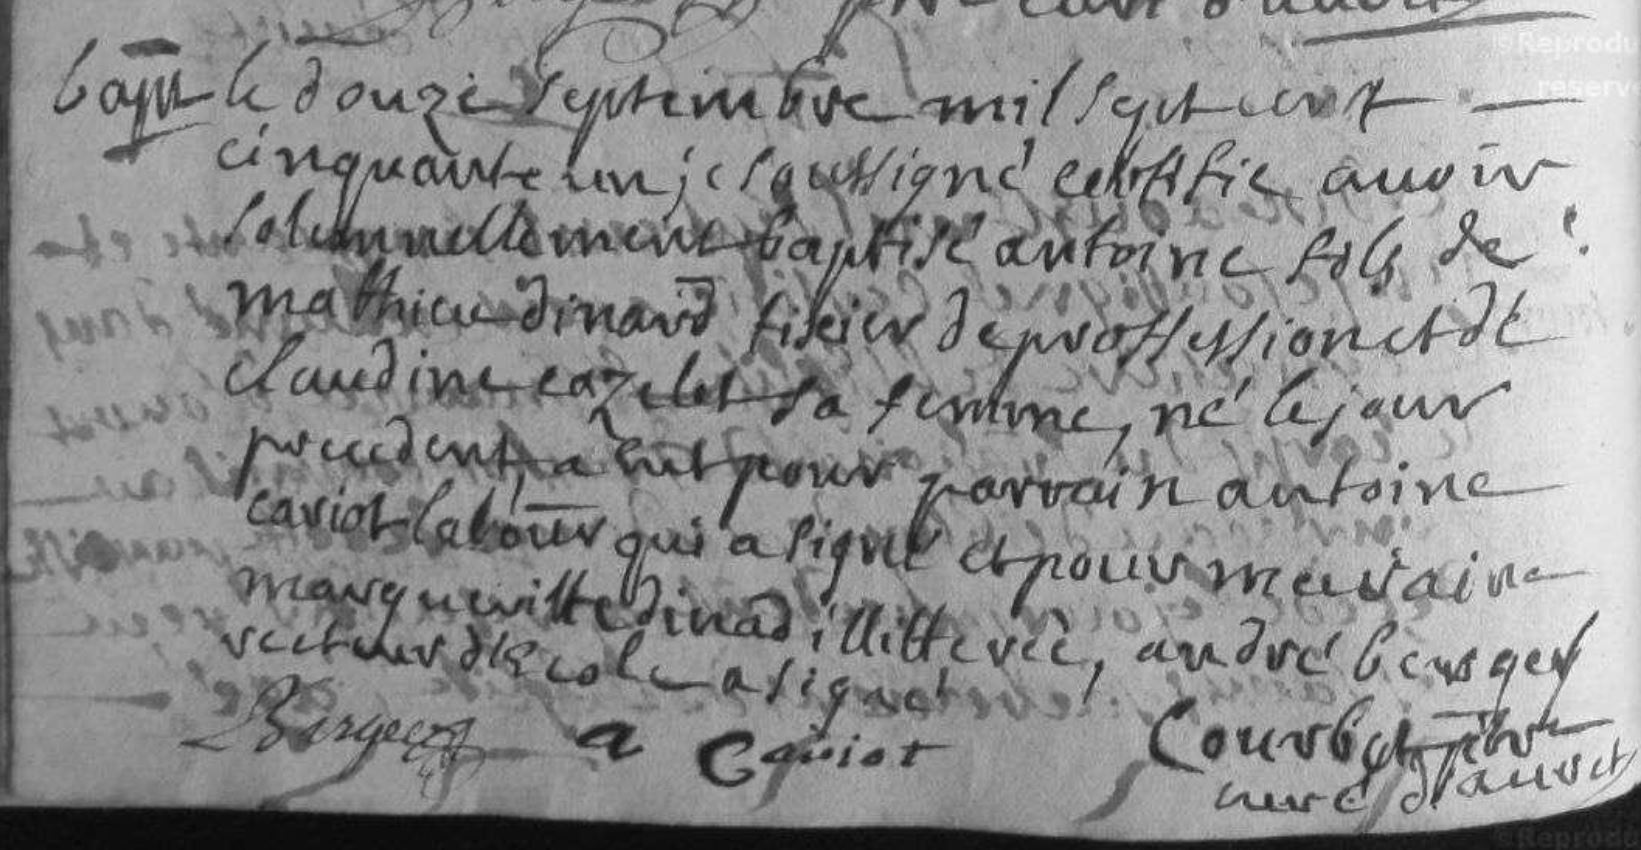 bapt le douze Septembre mil Sept cent
cinquante un je Soussigné certifie avoir
Solennellement baptisé antoine fils de
mathieu dinard de proffession et de
claudine cazelet sa femme, né le jour
precedent, a eut pour parrain antoine
caviot labour qui a signé et pour marraine
margueritte dinad illitterée, andré berger
recteur d'Ecole a signé
Berger a Caviot Courbet ptre
curé d'auvet
© Reprodu
reserv
© Reprodu